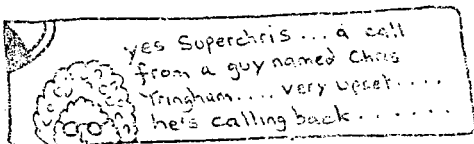 yes Superchris ... a call
from a guy named Chris
Tringham.... very upset....
he's calling back.......